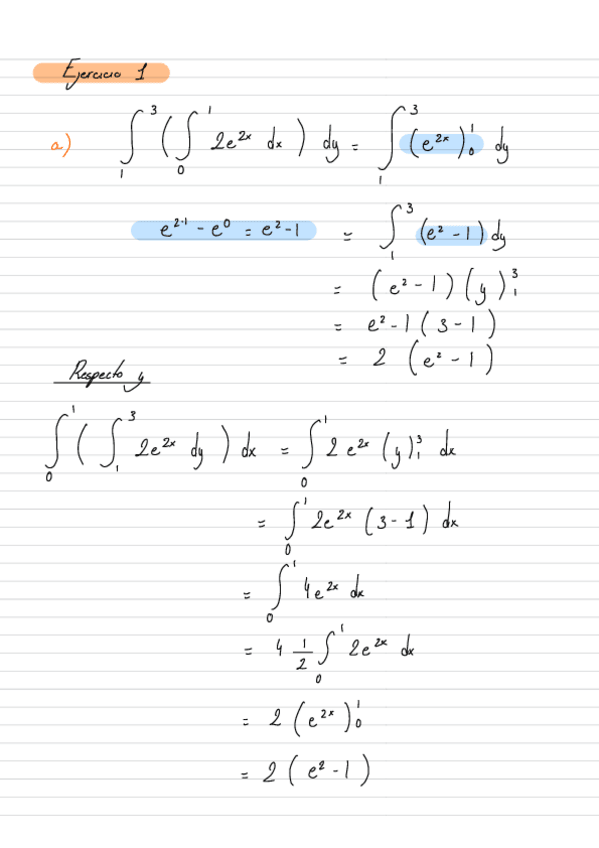 Ejercicio 1
a) ∫₁³ (∫₀¹ 2e²ˣ dx) dy = ∫₁³ (e²ˣ)₀¹ dy
e²·¹ - e⁰ = e² - 1 = ∫₁³ (e² - 1) dy
= (e² - 1) (y)₁³
= e² - 1 (3 - 1)
= 2 (e² - 1)
Respecto y
∫₀¹ (∫₁³ 2e²ˣ dy) dx = ∫₀¹ 2e²ˣ (y)₁³ dx
= ∫₀¹ 2e²ˣ (3 - 1) dx
= ∫₀¹ 4e²ˣ dx
= 4 1/2 ∫₀¹ 2e²ˣ dx
= 2 (e²ˣ)₀¹
= 2 (e² - 1)